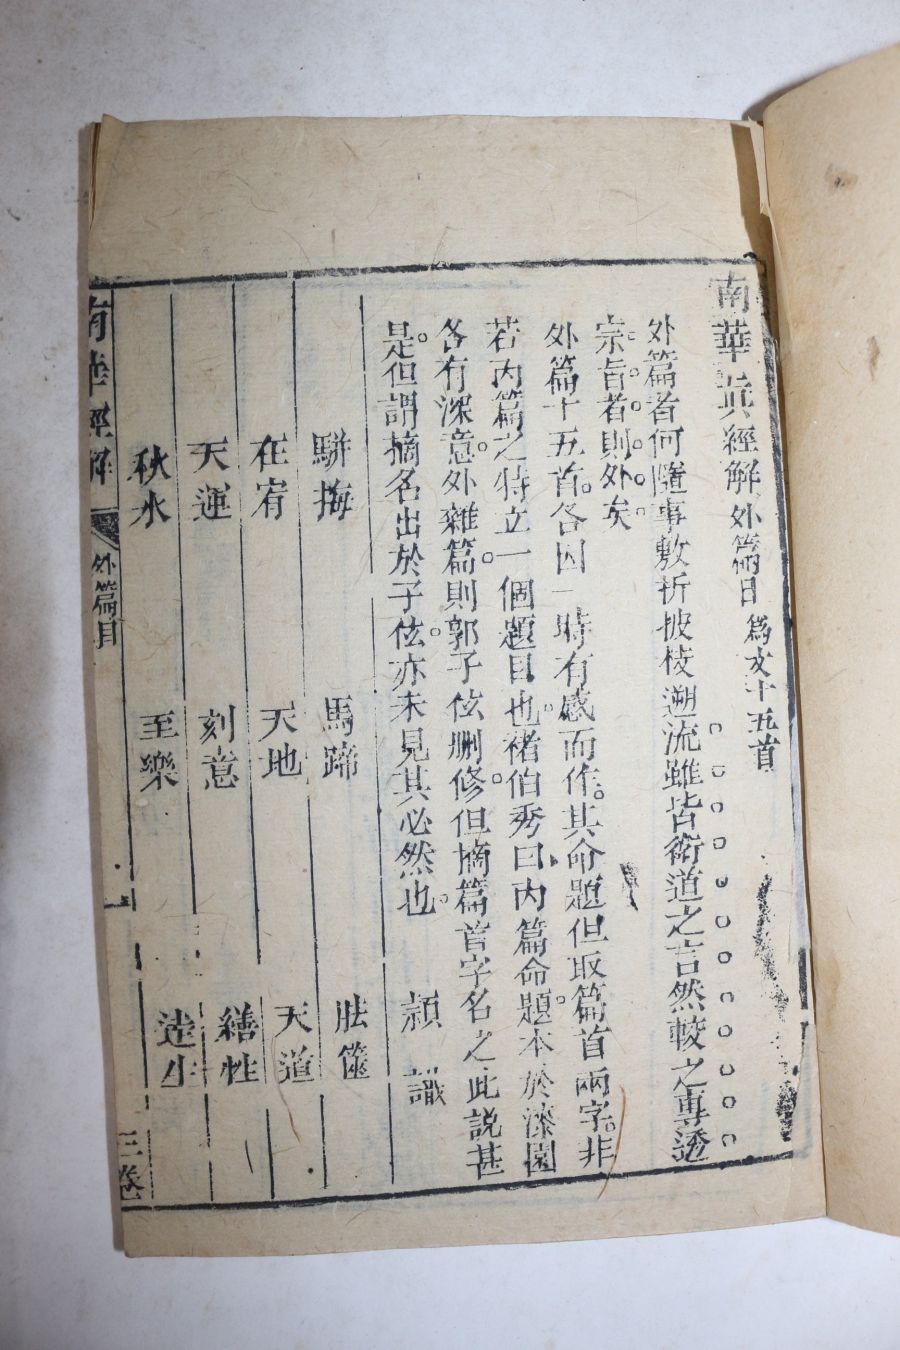 南華眞經解外篇目 爲文十五首
外篇者何隨事敷析披枝遡流雖皆衛道之言然較之專透
宗旨者則外矣
外篇十五首各因一時有感而作其命題但取篇首兩字非
若內篇之特立一個題目也褚伯秀曰內篇命題本於漆園
各有深意外雜篇則郭子伭刪修但摘篇首字名之此説甚
是但謂摘名出於子伭亦未見其必然也 穎識
駢拇 馬蹄 胠篋
在宥 天地 天道
天運 刻意 繕性
秋水 至樂 達生
南華經解 外篇目 一 三卷